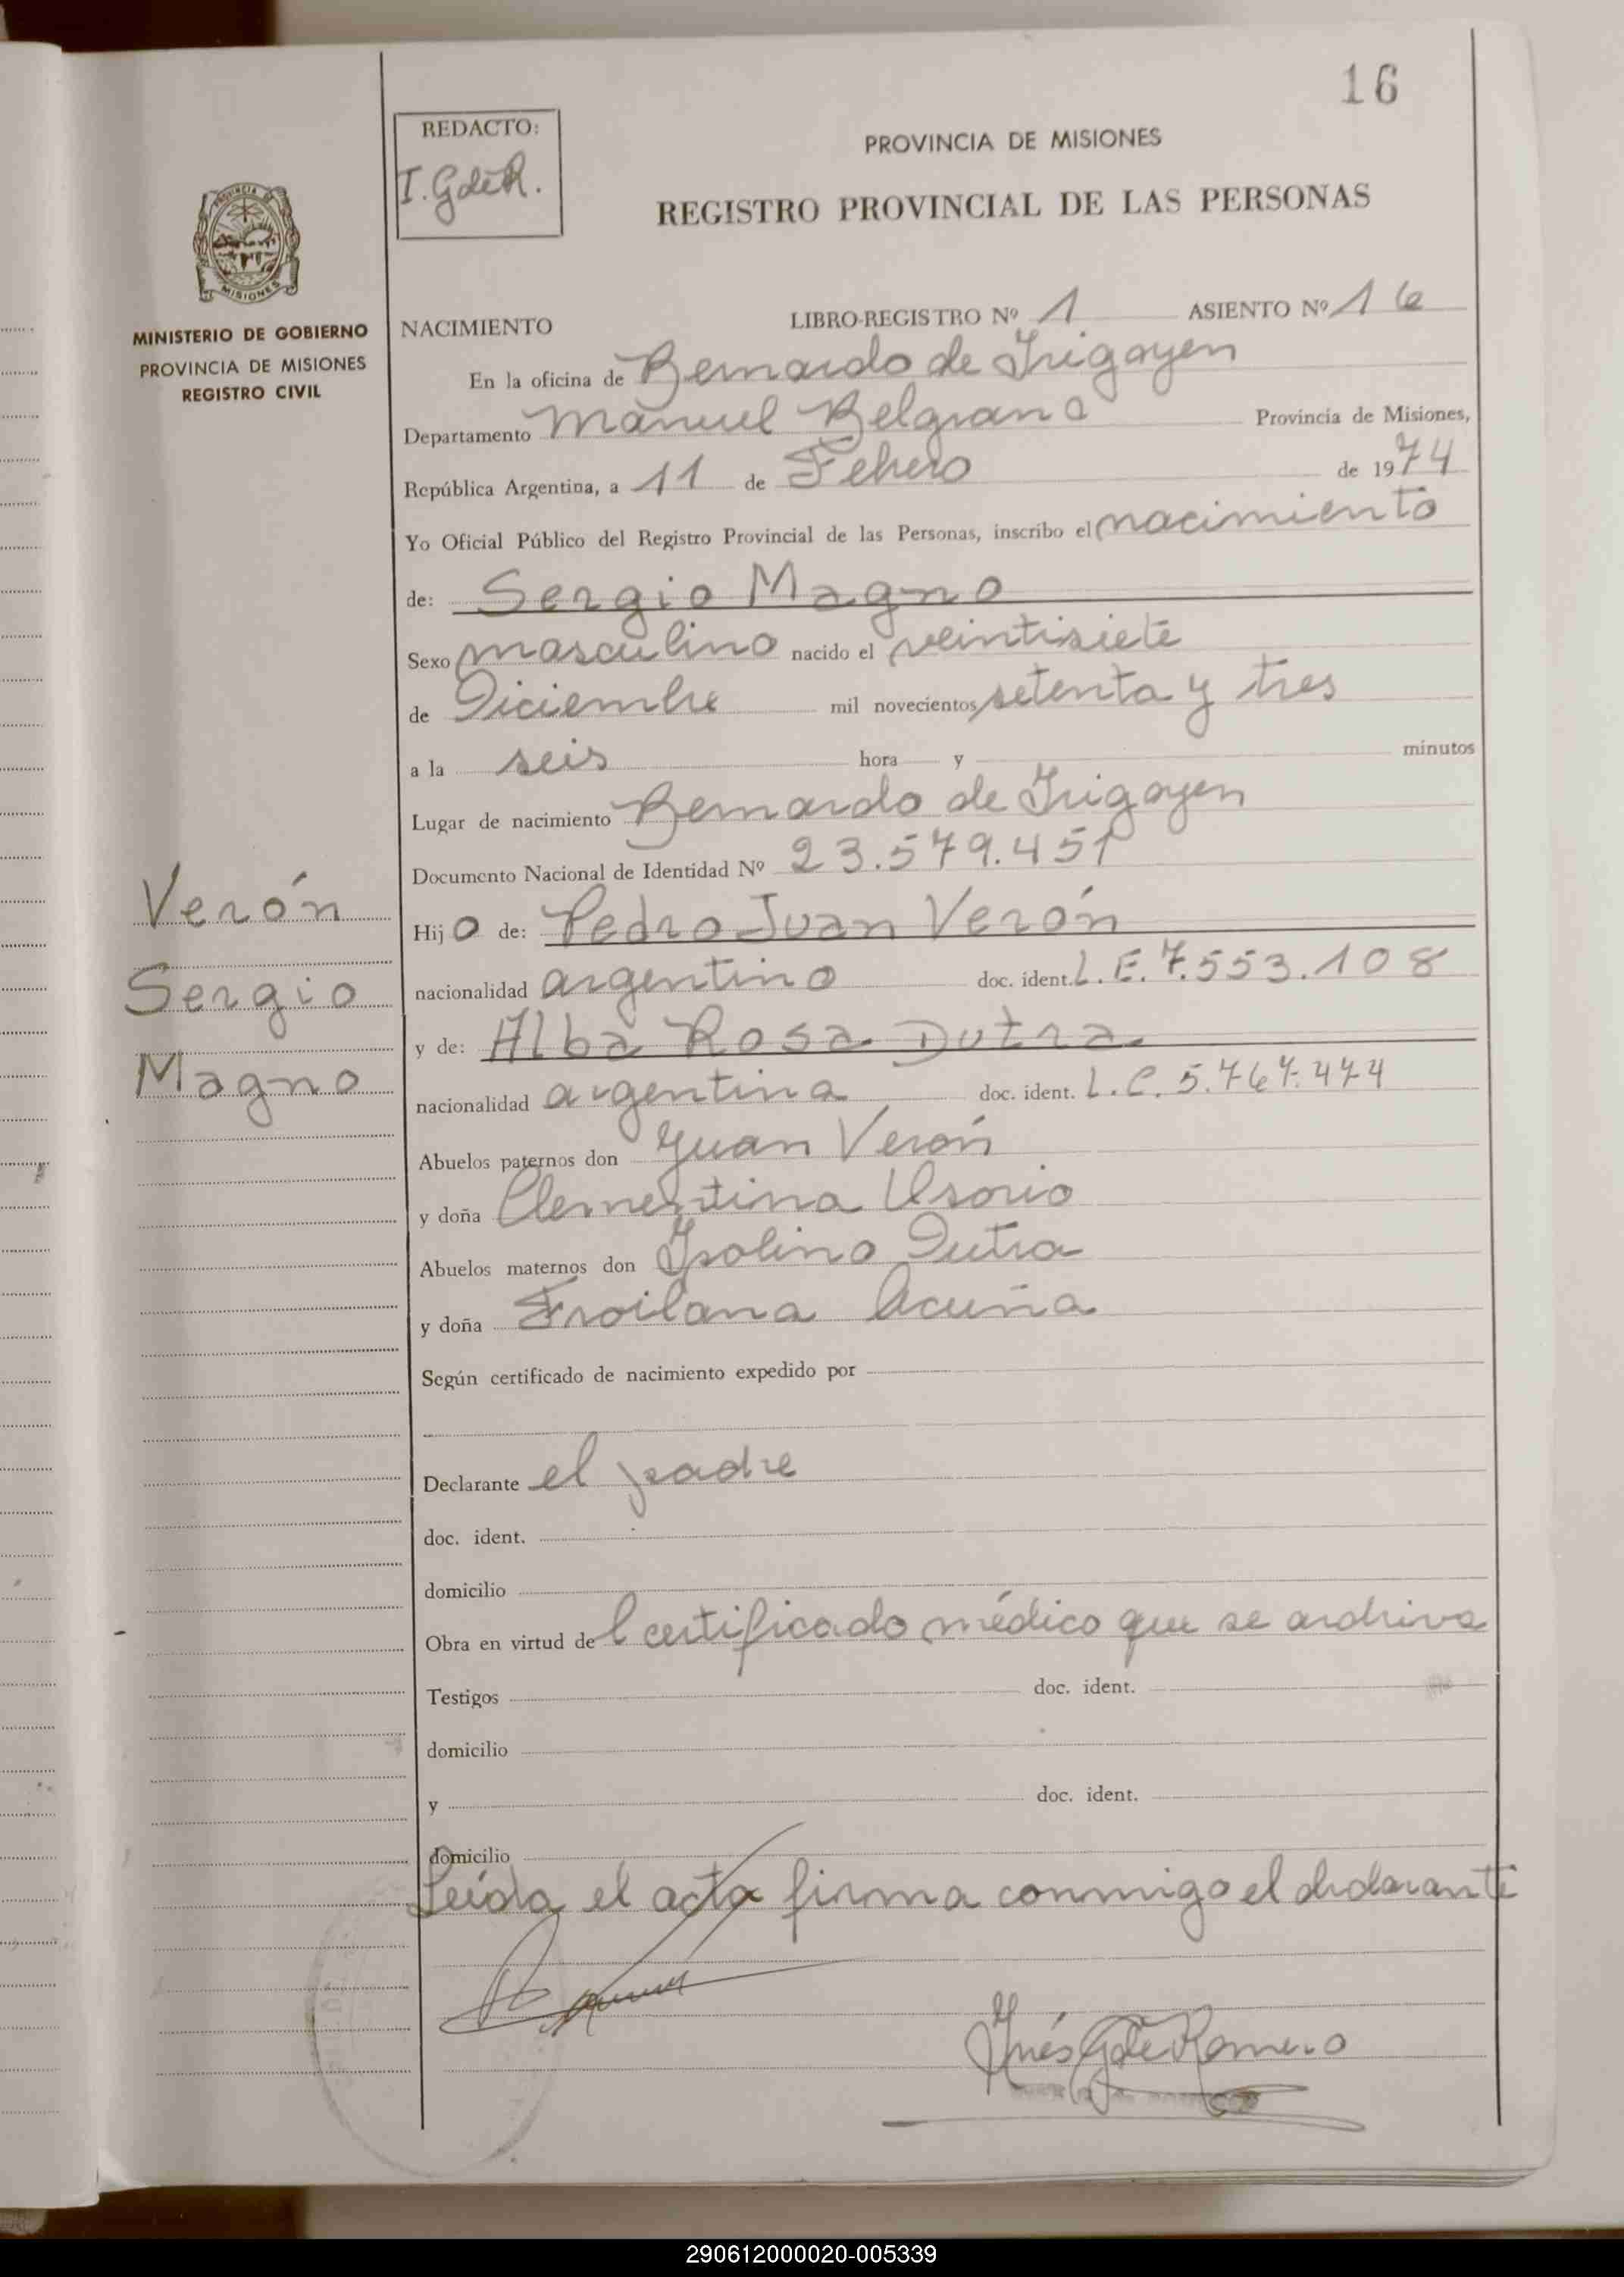 16
REDACTO:
I. GdeR.
PROVINCIA DE MISIONES
REGISTRO PROVINCIAL DE LAS PERSONAS
PROVINCIA DE
MISIONES
MINISTERIO DE GOBIERNO
PROVINCIA DE MISIONES
REGISTRO CIVIL
NACIMIENTO LIBRO-REGISTRO Nº 1 ASIENTO Nº 16
En la oficina de Bernardo de Irigoyen
Departamento Manuel Belgrano Provincia de Misiones,
República Argentina, a 11 de Febrero de 1974
Yo Oficial Público del Registro Provincial de las Personas, inscribo el nacimiento
de: Sergio Magno
Sexo masculino nacido el veintisiete
de Diciembre mil novecientos setenta y tres
a la seis hora y minutos
Lugar de nacimiento Bernardo de Irigoyen
Documento Nacional de Identidad Nº 23.579.451
Verón
Sergio
Magno
Hijo de: Pedro Juan Verón
nacionalidad argentino doc. ident. L.E. 7.553.108
y de: Alba Rosa Dutra
nacionalidad argentina doc. ident. L.C. 5.767.474
Abuelos paternos don Juan Verón
y doña Clementina Osorio
Abuelos maternos don Isolino Dutra
y doña Froilana Acuña
Según certificado de nacimiento expedido por
Declarante el padre
doc. ident.
domicilio
Obra en virtud del certificado médico que se archiva
Testigos doc. ident.
domicilio
y doc. ident.
domicilio
Leída el acta firma conmigo el declarante
Inés G de Romero
290612000020-005339